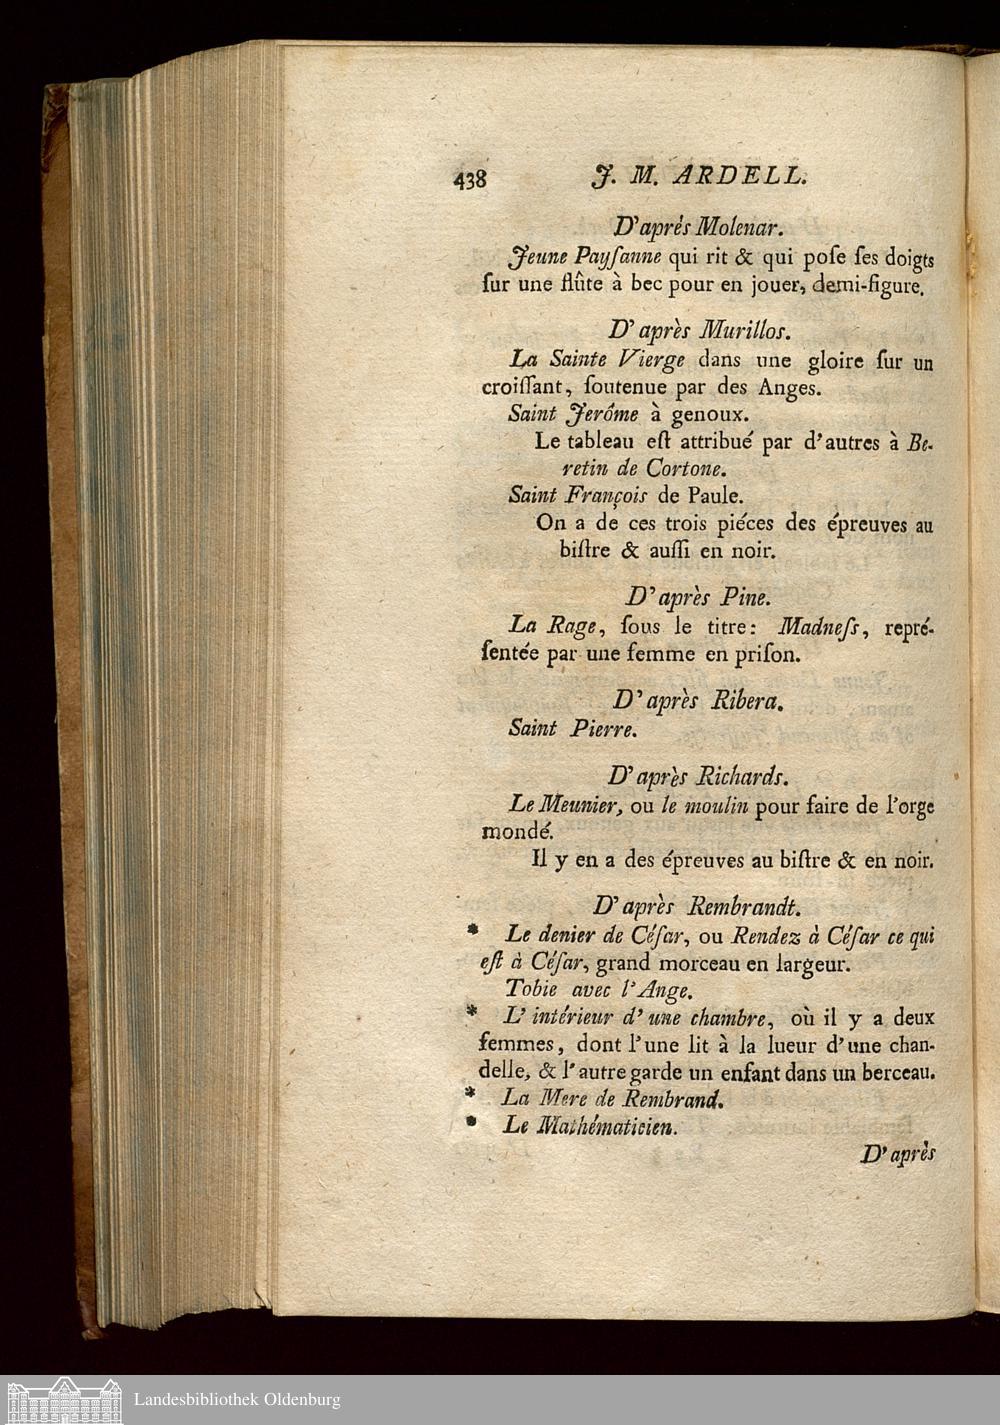 438 J. M. ARDELL.
D'après Molenar.
Jeune Payſanne qui rit & qui poſe ſes doigts
ſur une flûte à bec pour en jouer, demi-figure.
D'après Murillos.
La Sainte Vierge dans une gloire ſur un
croiſſant, ſoutenue par des Anges.
Saint Jerôme à genoux.
Le tableau eſt attribué par d'autres à Be-
retin de Cortone.
Saint François de Paule.
On a de ces trois piéces des épreuves au
biſtre & auſſi en noir.
D'après Pine.
La Rage, ſous le titre: Madneſs, repré-
ſentée par une femme en priſon.
D'après Ribera.
Saint Pierre.
D'après Richards.
Le Meunier, ou le moulin pour faire de l'orge
mondé.
Il y en a des épreuves au biſtre & en noir.
D'après Rembrandt.
* Le denier de Céſar, ou Rendez à Céſar ce qui
eſt à Céſar, grand morceau en largeur.
Tobie avec l'Ange.
* L'intérieur d'une chambre, où il y a deux
femmes, dont l'une lit à la lueur d'une chan-
delle, & l'autre garde un enfant dans un berceau.
* La Mere de Rembrand.
* Le Mathématicien.
D'après
Landesbibliothek Oldenburg